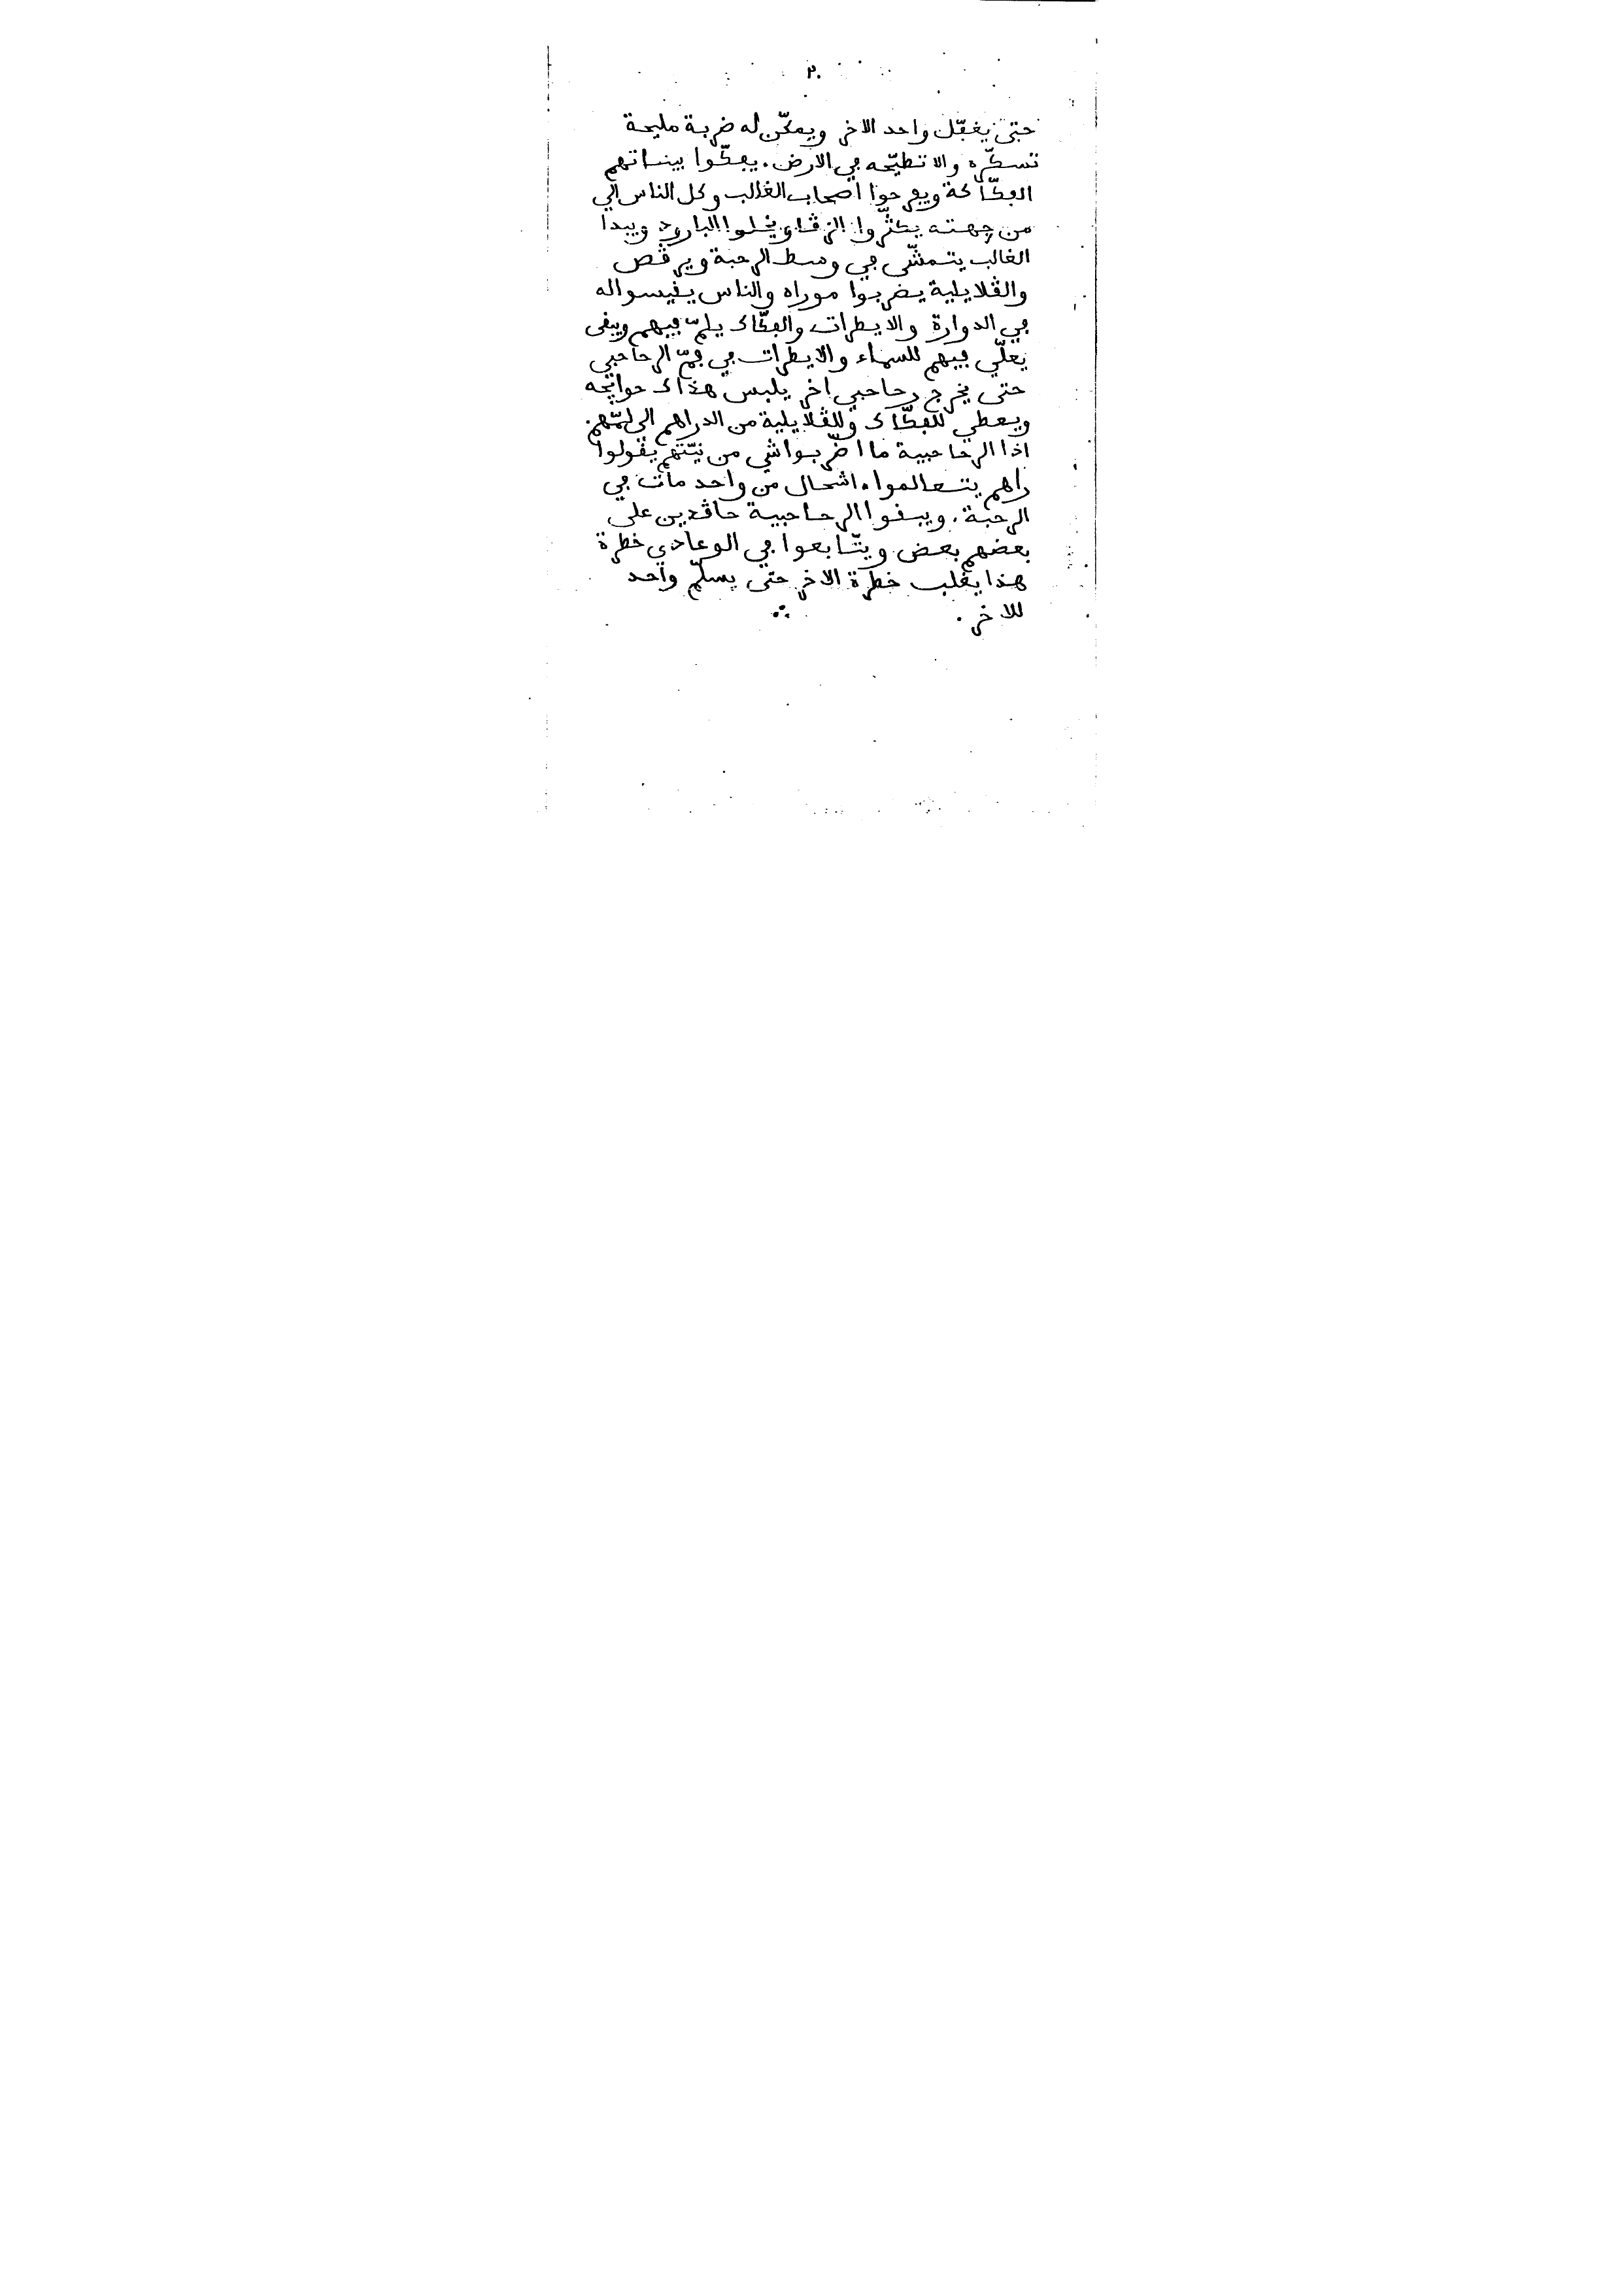 ٢٠
حتى يغڢّل واحد الاخر ويمكّن له ضربة مليحة
تسكّره والا تطيّحه ڢي الارض. يڢكّوا بيناتهم
الڢكّاكة ويڢرحوا اصحاب الغالب وكل الناس الي
من جهته يكثّروا الزڤا ويخلوا البارود ويبدا
الغالب يتمشّى ڢي وسط الرحبة ويرڤص
والڤلايلية يضربوا موراه والناس يڧيسوا له
ڢي الدوارة والايطرات والڢكّاك يلمّ ڢيهم ويبڧى
يعلّي ڢيهم للسماء والايطرات ڢي ڢمّ الرحاحبي
حتى يخرج رحاحبي اخر يلبس هذاك حوايجه
ويعطي للڢكّاك وللڤلايلية من الدراهم الى لمّهم
اذا الرحاحبية ما اضربواشي من نيّتهم يڧولوا
راهم يتعالموا. اشحال من واحد مات ڢي
الرحبة. ويبڧوا الرحاحبية حاڤدين على
بعضهم بعض ويتّابعوا ڢي الوعادي خطرة
هذا يغلب خطرة الاخر حتى يسلّم واحد
للاخر.